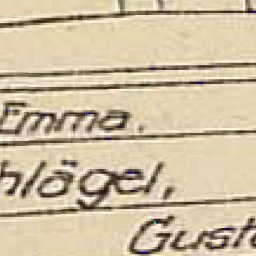 Emma.
hlägel,
Gust